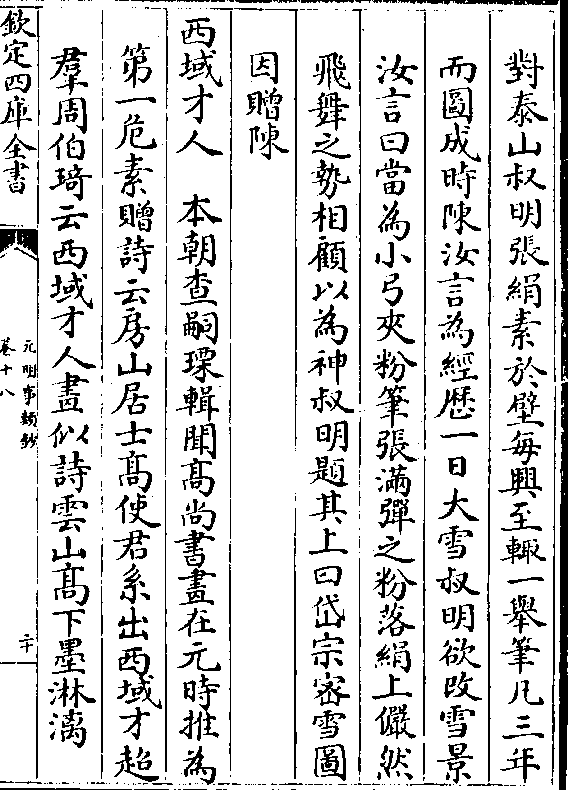 對泰山叔明張絹素於壁每興至輒一舉筆凡三年
而圖成時陳汝言為經歴一日大雪叔明欲改雪景
汝言曰當為小弓夾粉筆張滿彈之粉落絹上儼然
飛舞之勢相顧以為神叔明題其上曰岱宗密雪圖
因贈陳
西域才人　本朝查嗣瑮輯聞髙尚書畫在元時推為
第一危素贈詩云房山居士髙使君系出西域才超
羣周伯琦云西域才人畫似詩雲山髙下墨淋漓
欽定四庫全書
元明事類鈔
卷十八
二十